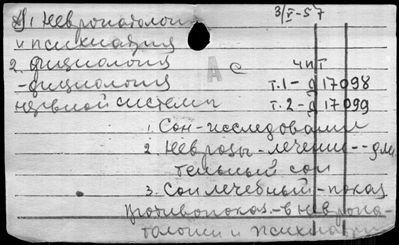 3/V-57
1. Невропатология
и психиатрия
2. Физиология
-физиология
нервной системы
А с
чит
т.1-д 17098
т.2-д 17099
1. Сон-исследования
2. Неврозы-лечение--дли
тельный сон
3. Сон лечебный-показ.
противопоказ.-в невропа-
тологии и психиатрии